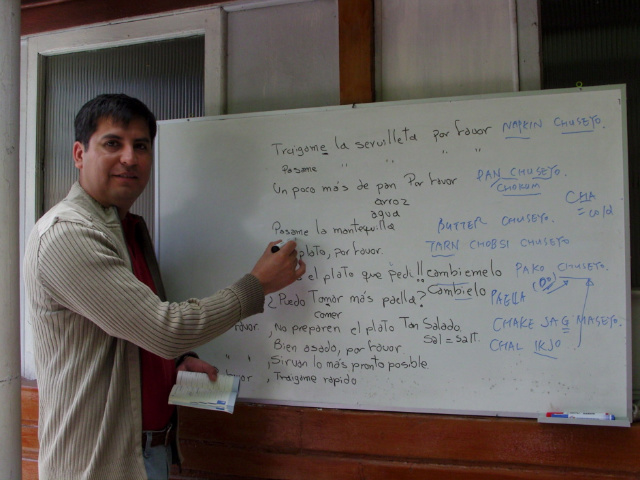 Traigame la servilleta por favor NAPKIN CHUSEYO.
Pasame " " " "
Un poco más de pan Por favor PAN CHUSEYO.
CHOKUM
arroz
agua
CHA
= cold
Pasame la mantequilla BUTTER CHUSEYO.
plato, por favor. TARN CHOBSI CHUSEYO
el plato que pedi!! cambiemelo PAKO CHUSEYO.
Cambielo
¿Puedo Tomar más paella? PAELLA
comer
favor, No preparen el plato Tan Salado. CMAKE JAG MASEYO.
sal = salt.
Bien asado, por favor CHAL IKJO
" " , Sirvan lo más pronto posible
favor , Traigame rápido